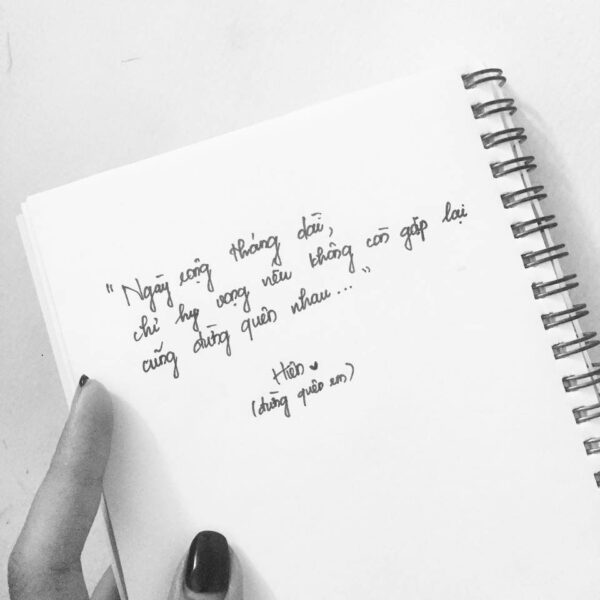 "Ngày rộng tháng dài,
chỉ hy vọng nếu không còn gặp lại
cũng đừng quên nhau..."
Hiên ♥
(đừng quên em)